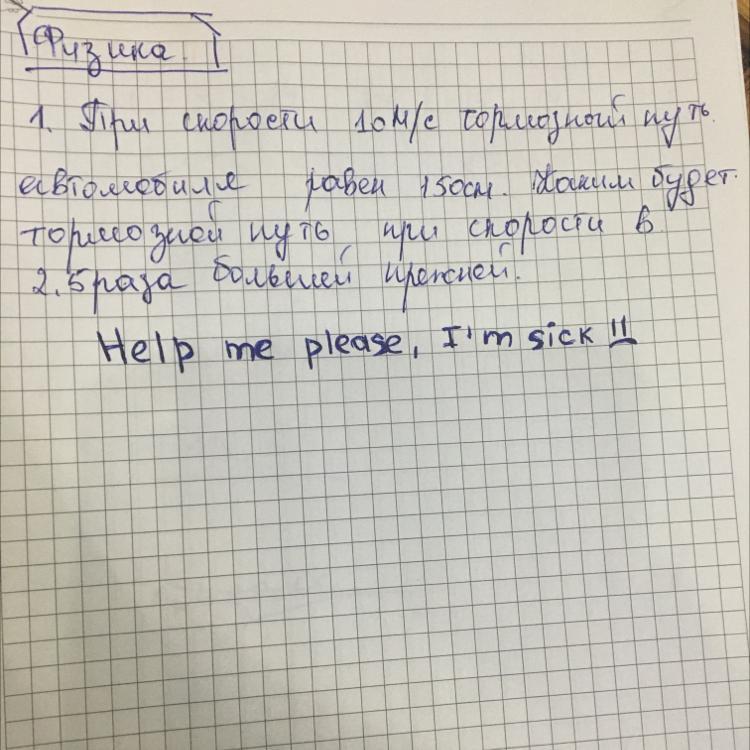 Физика.
1. При скорости 10м/с тормозной путь.
автомобиля равен 150см. Каким будет.
тормозной путь при скорости в
2.5 раза большей прежней.
Help me please, I'm sick!!